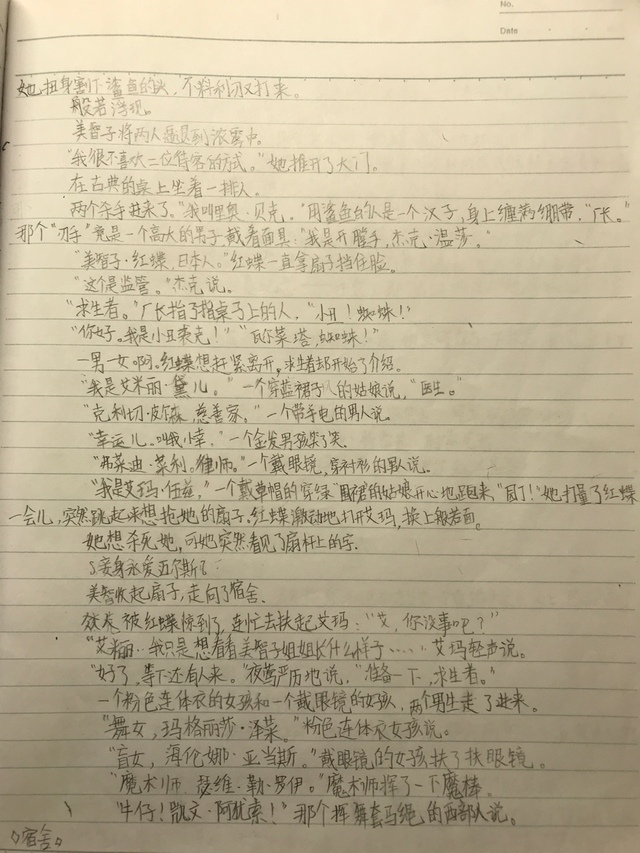 No.
Date
她扭身割下鲨鱼的头，不料利刃又打来。
般若浮现。
美智子将两人逼退到浓雾中。
“我很不喜欢二位待客的方式。”她推开了大门。
在古典的桌上坐着一排人。
两个杀手进来了。“我叫里奥·贝克。”用鲨鱼的人是一个汉子，身上缠满绷带，“厂长。”
那个“刃手”竟是一个高大的男子，戴着面具：“我是开膛手，杰克·温莎。”
“美智子·红蝶，日本人。”红蝶一直拿扇子挡住脸。
“这个是监管。”杰克说。
“求生者。”厂长指了指桌子上的人，“小丑！蜘蛛！”
“你好。我是小丑裘克！”“瓦尔莱塔，蜘蛛！”
一男一女啊。红蝶想赶紧离开，求生者却开始了介绍。
“我是艾米丽·黛儿。”一个穿蓝裙子的姑娘说，“医生。”
“克利切·皮尔森，慈善家，”一个带手电的男人说。
“幸运儿。叫我小幸。”一个金发男孩笑了笑。
“弗莱迪·莱利。律师。”一个戴眼镜，穿衬衫的男人说。
“我是艾玛·伍兹，”一个戴草帽的穿绿围裙的姑娘开心地跑来，“园丁！”她打量了红蝶
一会儿，突然跳起来想抢她的扇子。红蝶激动地打开艾玛，换上般若面。
她想杀死她，可她突然看见了扇杆上的字。
美智收起扇子，走向了宿舍。
被红蝶惊到了，连忙去扶起艾玛：“艾，你没事吧？”
“艾米丽…我只是想看看美智子姐姐长什么样子……”艾玛轻声说。
“好了，等下还有人来。”夜莺严厉地说，“准备一下，求生者。”
一个粉色连体衣的女孩和一个戴眼镜的女孩，两个男生走了进来。
“舞女，玛格丽莎·泽莱。”粉色连体衣女孩说。
“盲女，海伦娜·亚当斯。”戴眼镜的女孩扶了扶眼镜。
“魔术师 瑟维·勒·罗伊。”魔术师挥了一下魔棒。
“牛仔！凯文·阿犹索！”那个挥舞套马绳的西部人说。
宿舍